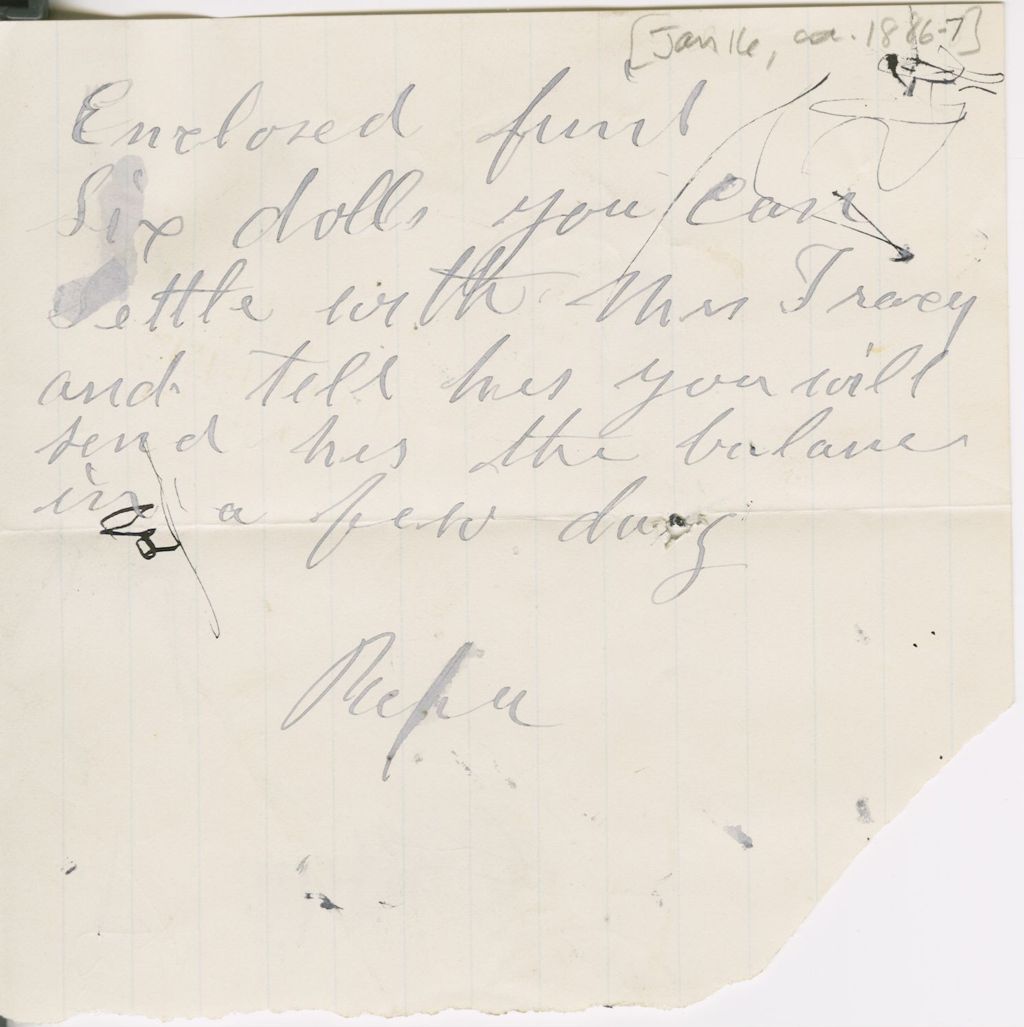 [Jan 16, ca. 1886-7]
Enclosed find
Six dolls you can
Settle with Mrs Tracy
and tell her you will
send her the balance
in a few days
Papa